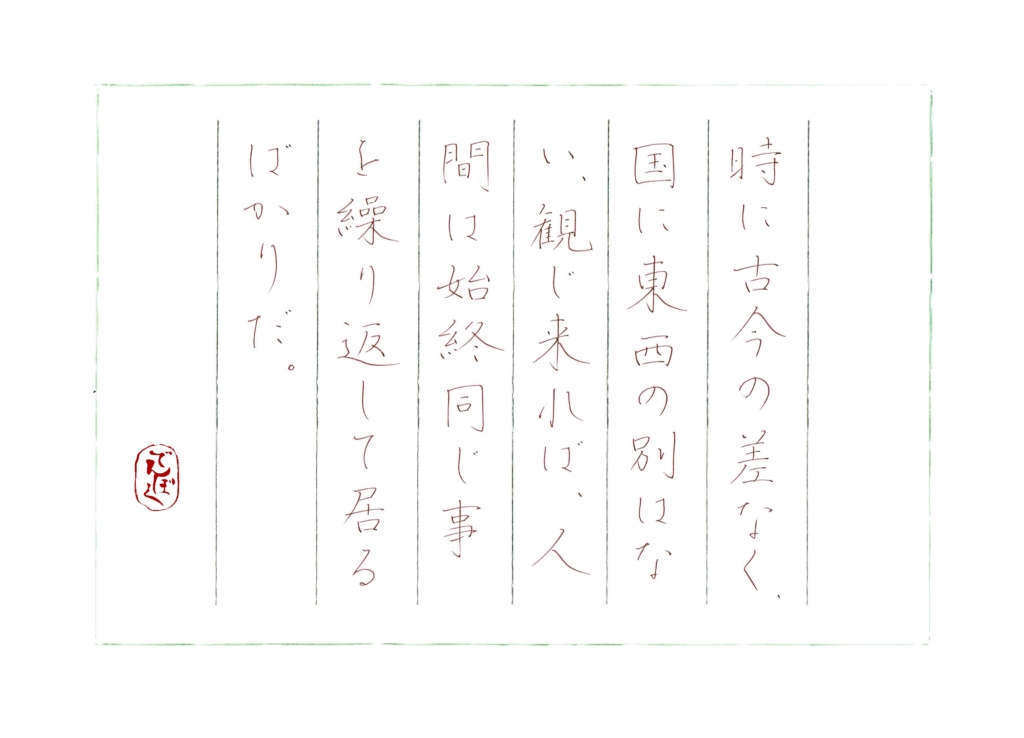 時に古今の差なく、
国に東西の別はな
い、観じ来れば、人
間は始終同じ事
を繰り返して居る
ばかりだ。